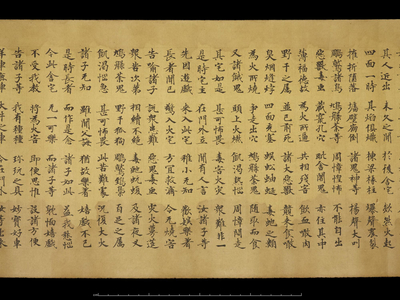 其人近出 未久之間 於後宅舍 欻然火起
四面一時 其焰俱熾 棟梁椽柱 爆聲震裂
摧折墮落 墻壁崩倒 諸鬼神等 揚聲大叫
鵰鷲諸鳥 鳩槃荼等 周慞惶怖 不能自出
惡獸毒虫 藏竄孔穴 毗舍闍鬼 亦住其中
薄福德故 為火所逼 共相殘害 飲血噉肉
野干之屬 並已前死 諸大惡獸 競來食噉
臭烟熢㶿 四面充塞 蜈蚣蚰蜒 毒蛇之類
為火所燒 爭走出穴 鳩槃荼鬼 隨取而食
又諸餓鬼 頭上火燃 飢渴熱惱 周慞悶走
其宅如是 甚可怖畏 毒害火災 眾難非一
是時宅主 在門外立 聞有人言 汝諸子等
先因遊戲 來入此宅 稚小无知 歡娛樂著
長者聞已 驚入火宅 方宜救濟 令无燒害
告喻諸子 說眾患難 惡鬼毒虫 災火蔓莚
眾苦次第 相續不絕 毒蛇蚖蝮 及諸夜叉
鳩槃荼鬼 野干狐狗 鵰鷲鵄梟 百足之屬
飢渴惱急 甚可怖畏 此苦難處 況復大火
諸子无知 雖聞父誨 猶故樂著 嬉戲不已
是時長者 而作是念 諸子如此 益我愁惱
今此舍宅 无一可樂 而諸子等 耽湎嬉戲
不受我教 將為火害 即便思惟 設諸方便
告諸子等 我有種種 珍玩之具 妙寶好車